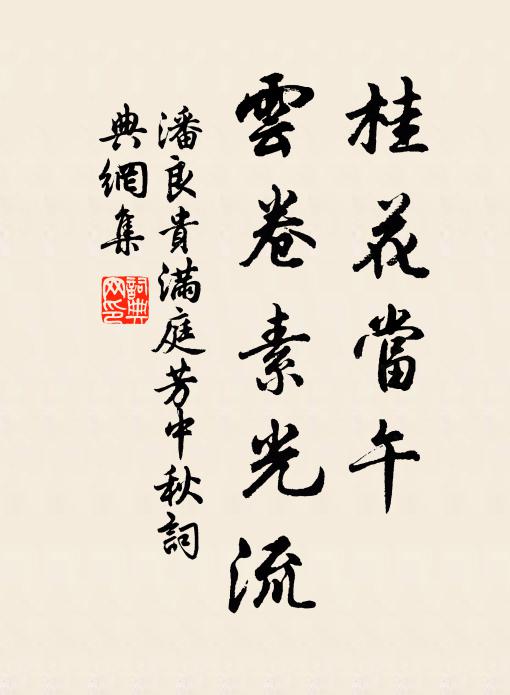 桂花當午
雲卷素光流
潘良貴滿庭芳中秋詞
典網集
詞典
网印